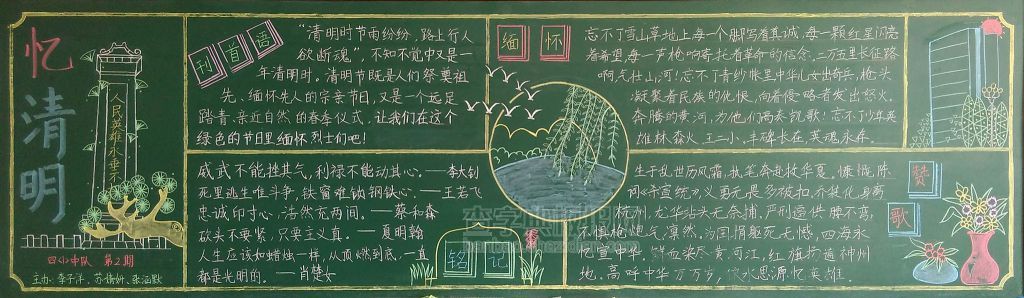 忆清明
人民英雄永垂不
四(1)中队 第2期
主办:李子洋、苏倩妍、张涵默
刊首语
"清明时节雨纷纷,路上行人
欲断魂",不知不觉中又是一
年清明时。清明节既是人们祭奠祖
先、缅怀先人的宗亲节日,又是一个远足
踏青、亲近自然的春季仪式,让我们在这个
绿色的节日里缅怀烈士们吧!
威武不能挫其气,利禄不能动其心。——李大钊
死里逃生唯斗争,铁窗难锁钢铁心。——王若飞
忠诚印寸心,浩然充两间。——蔡和森
砍头不要紧,只要主义真。——夏明翰
人生应该如蜡烛一样,从顶燃到底,一直
都是光明的。——肖楚女
铭记
缅怀
忘不了雪山草地上每一个脚写着真诚,每一颗红星闪亮
着希望,每一声枪响寄托着革命的信念,二万五里长征路
啊,气壮山河!忘不了青纱帐里中华儿女出奇兵,枪头
凝聚着民族的仇恨,向着侵略者发出怒火。
奔腾的黄河,为他们高奏凯歌!忘不了少年英
雄林森火、王二小,丰碑长在,英魂永存。
赞歌
生于乱世历风霜,执笔奔赴救华夏。慷慨陈
词
杭州,龙华站头无奈捕。严刑逼供腰不弯,
不惧枪炮气凛然,治国捐躯死无憾,四海永
忆壹中华。鲜血染尽黄河江,红旗扬遍神州
地。高呼中华万万岁,饮水思源忆英雄。